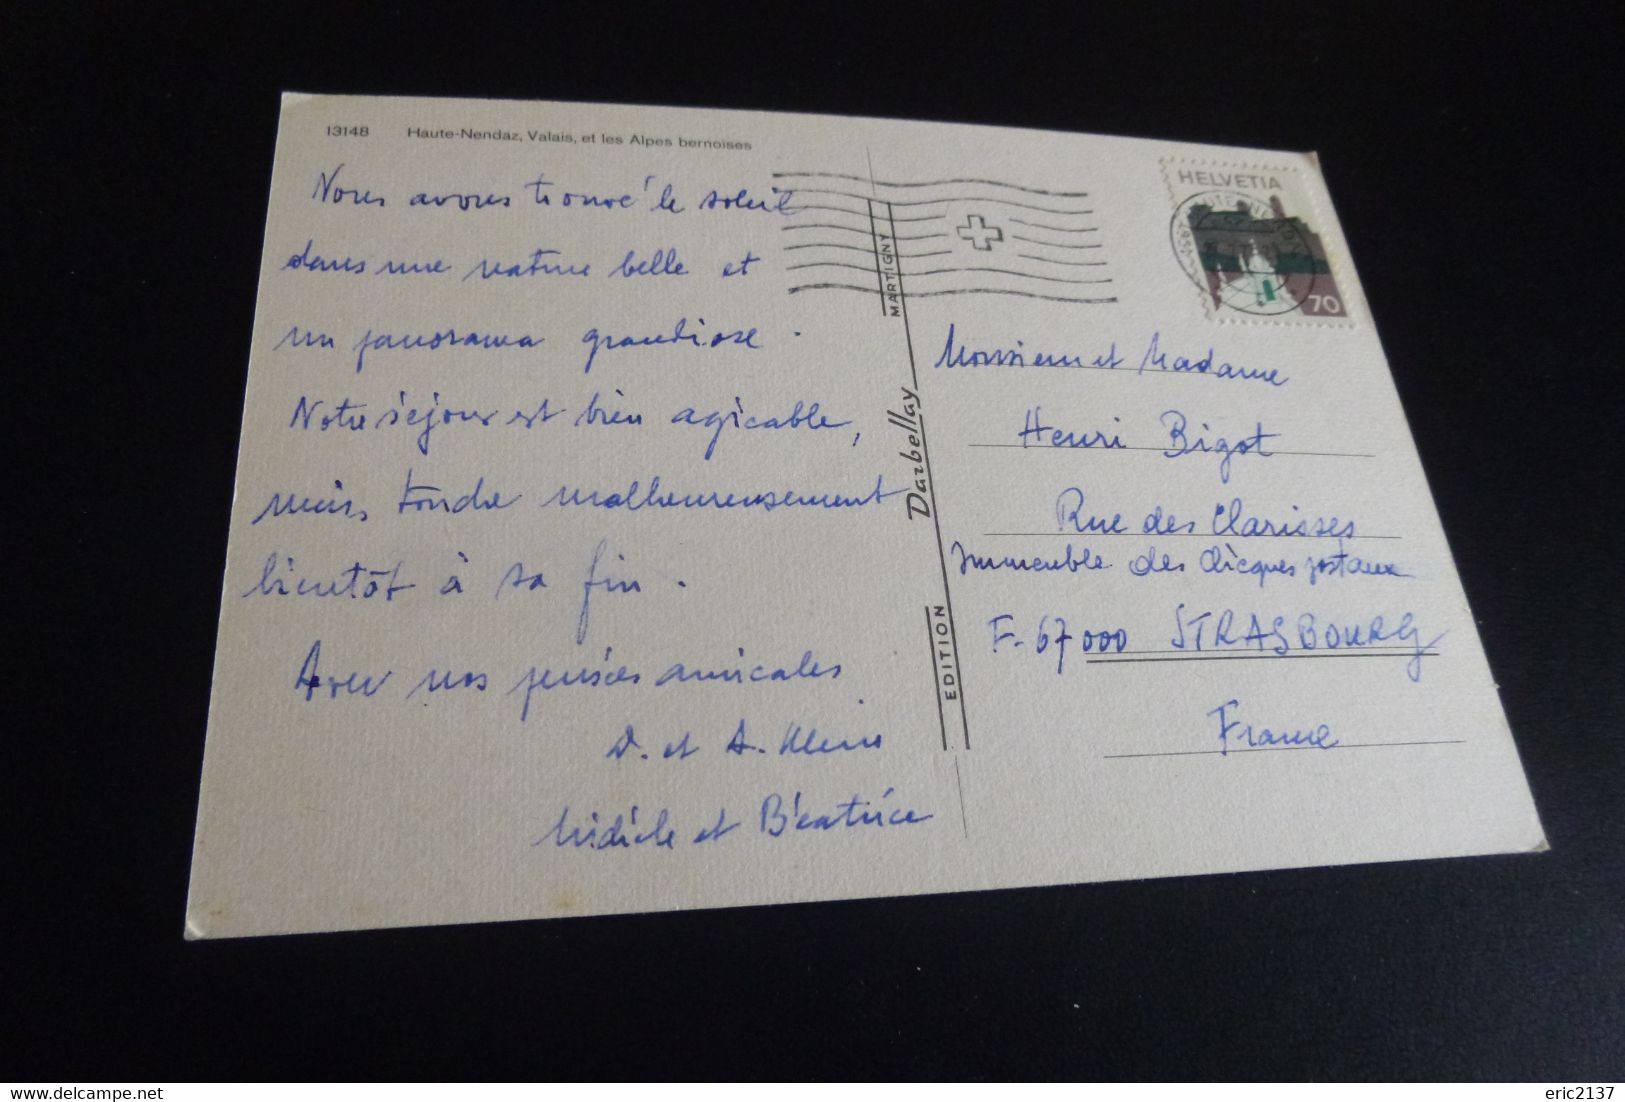 13148 Haute-Nendaz, Valais, et les Alpes bernoises
Nous avons trouvé le soleil
dans une nature belle et
un panorama grandiose.
Notre séjour est bien agréable,
mais, touche malheureusement
bientôt à sa fin.
Avec nos pensées amicales
D. et A. Klein
Michèle et Béatrice
EDITION Darbellay MARTIGNY
HELVETIA
70
Monsieur et Madame
Henri Bigot
Rue des Clarisses
Immeuble des chèques postaux
F-67000 STRASBOURG
France
delcampe.net
eric2137